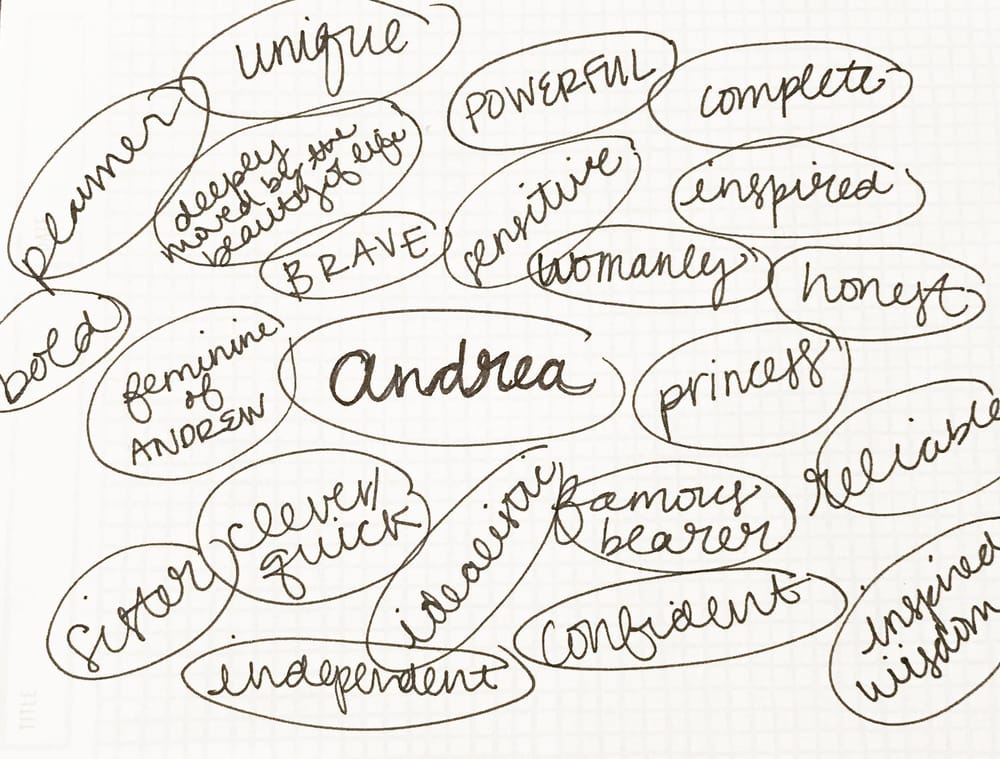 unique
POWERFUL
complete
planner
deeply
moved by the
beauty of life
sensitive
inspired
BRAVE
womanly
honest
bold
feminine
of
ANDREW
andrea
princess
reliable
clever/
quick
idealistic
famous
bearer
sister
confident
inspired
wisdom
independent
TITLE